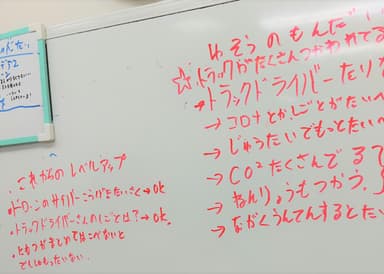 ゆそうのもんだい
☆トラックがたくさんつかわれてる
→トラックドライバーたりな
→コロナとかしごとがたいへ
→じゅうたいでもっとたいへ
→CO²たくさんでるて
→ねんりょうもつかう。
→ながくうんてんするとたい
これからのレベルアップ
・ドローンのサイバーこうげきたいさく→OK
・トラックドライバーさんのしごとは?→OK
・ともつがまとめてはこべないと